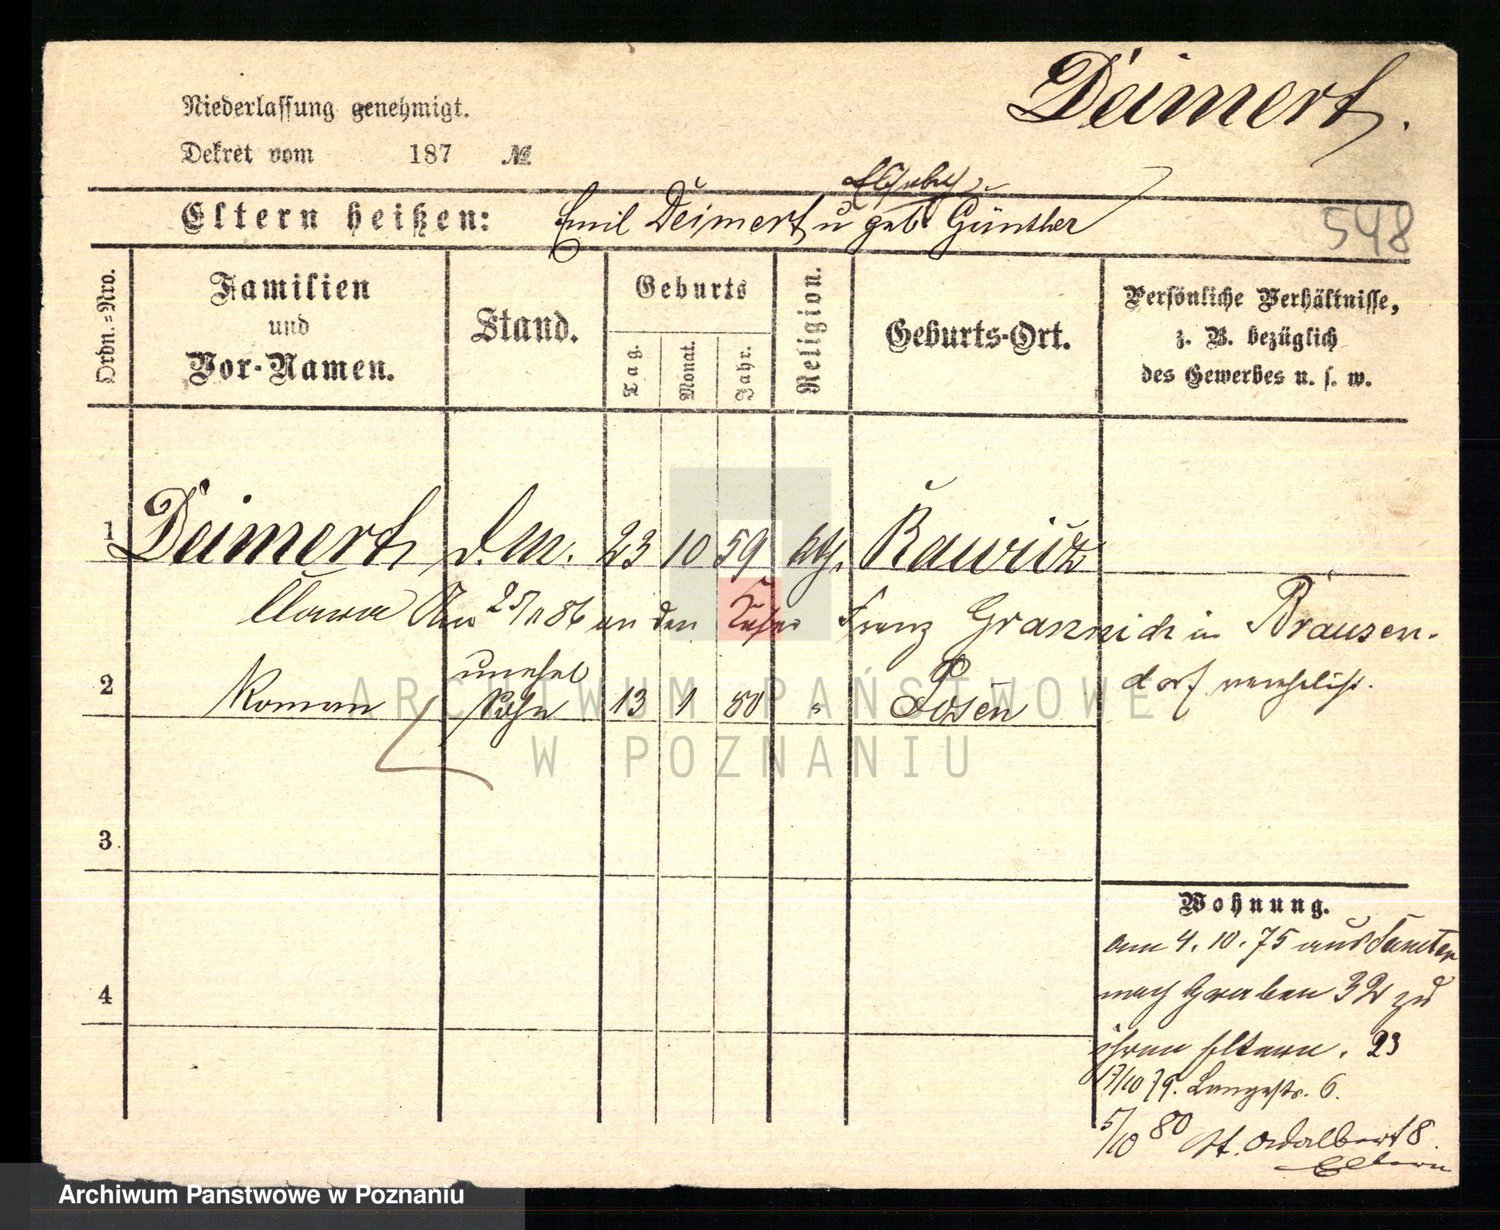 Deimert.
Niederlassung genehmigt.
Dekret vom 187 №
Eltern heißen: Emil Deimert u geb Günther
548
Ordn.-Nro.
Familien
und
Vor-Namen.
Stand.
Geburts
Tag.
Monat.
Jahr.
Religion.
Geburts-Ort.
Persönliche Verhältnisse,
z. B. bezüglich
des Gewerbes u. s. w.
1 Deimert d. m. 23 10 59 kth. Rawicz
Clara Am 25/11 86 an den Franz Grannich in Brausen-
dorf verehelicht.
2 Roman unehel Sohn 13 1 80 " Posen
3
4
Wohnung.
am 4. 10. 75 aus Samter
nach Graben 32 zu
ihren Eltern. 23
17/10 79. Langestr. 6.
5/10 80 St. Adalbert 8.
Eltern
ARCHIWUM PAŃSTWOWE
W POZNANIU
Archiwum Państwowe w Poznaniu